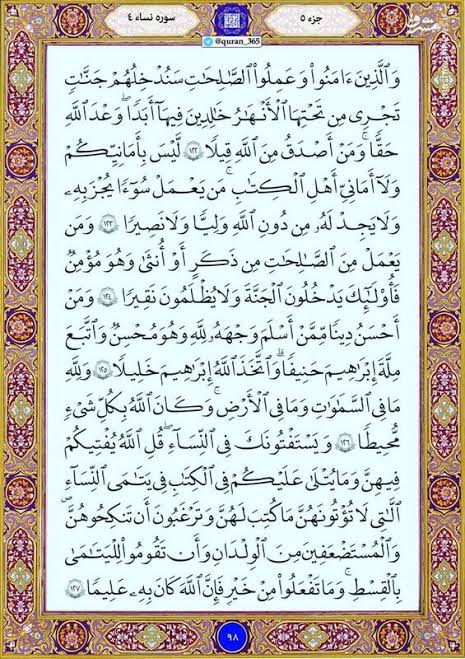 جزء ۵
سوره نساء ۴
@quran_365
وَالَّذِينَ ءَامَنُوا۟ وَعَمِلُوا۟ الصَّالِحَاتِ سَنُدْخِلُهُمْ جَنَّاتٍ
تَجْرِى مِن تَحْتِهَا الْأَنْهَارُ خَالِدِينَ فِيهَآ أَبَدًا ۖ وَعْدَ اللَّهِ
حَقًّا ۚ وَمَنْ أَصْدَقُ مِنَ اللَّهِ قِيلًا ۱۲۲ لَّيْسَ بِأَمَانِيِّكُمْ
وَلَآ أَمَانِىِّ أَهْلِ الْكِتَابِ ۗ مَن يَعْمَلْ سُوٓءًا يُجْزَ بِهِۦ
وَلَا يَجِدْ لَهُۥ مِن دُونِ اللَّهِ وَلِيًّا وَلَا نَصِيرًا ۱۲۳ وَمَن
يَعْمَلْ مِنَ الصَّالِحَاتِ مِن ذَكَرٍ أَوْ أُنثَىٰ وَهُوَ مُؤْمِنٌ
فَأُو۟لَـٰٓئِكَ يَدْخُلُونَ الْجَنَّةَ وَلَا يُظْلَمُونَ نَقِيرًا ۱۲۴ وَمَنْ
أَحْسَنُ دِينًا مِّمَّنْ أَسْلَمَ وَجْهَهُۥ لِلَّهِ وَهُوَ مُحْسِنٌ وَاتَّبَعَ
مِلَّةَ إِبْرَاهِيمَ حَنِيفًا ۗ وَاتَّخَذَ اللَّهُ إِبْرَاهِيمَ خَلِيلًا ۱۲۵ وَلِلَّهِ
مَا فِى السَّمَاوَاتِ وَمَا فِى الْأَرْضِ ۚ وَكَانَ اللَّهُ بِكُلِّ شَىْءٍ
مُّحِيطًا ۱۲۶ وَيَسْتَفْتُونَكَ فِى النِّسَآءِ ۖ قُلِ اللَّهُ يُفْتِيكُمْ
فِيهِنَّ وَمَا يُتْلَىٰ عَلَيْكُمْ فِى الْكِتَابِ فِى يَتَامَى النِّسَآءِ
الَّاتِى لَا تُؤْتُونَهُنَّ مَا كُتِبَ لَهُنَّ وَتَرْغَبُونَ أَن تَنكِحُوهُنَّ
وَالْمُسْتَضْعَفِينَ مِنَ الْوِلْدَانِ وَأَن تَقُومُوا۟ لِلْيَتَامَىٰ
بِالْقِسْطِ ۚ وَمَا تَفْعَلُوا۟ مِنْ خَيْرٍ فَإِنَّ اللَّهَ كَانَ بِهِۦ عَلِيمًا ۱۲۷
۹۸